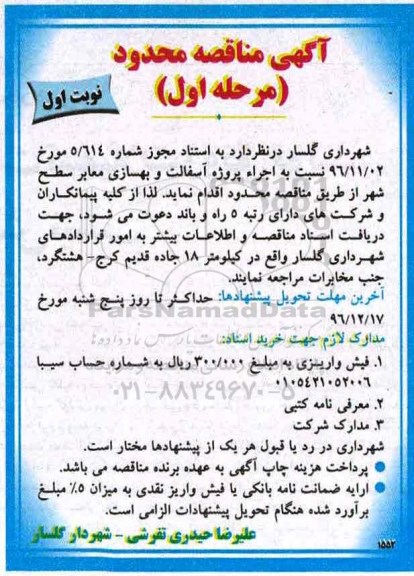 آگهی مناقصه محدود
(مرحله اول)
نوبت اول
شهرداری گلسار درنظردارد به استناد مجوز شماره ۵/۶۱۴ مورخ
۹۶/۱۱/۰۲ نسبت به اجراء پروژه آسفالت و بهسازی معابر سطح
شهر از طریق مناقصه محدود اقدام نماید. لذا از کلیه پیمانکاران
و شرکت های دارای رتبه ۵ راه و باند دعوت می شود، جهت
دریافت اسناد مناقصه و اطلاعات بیشتر به امور قراردادهای
شهرداری گلسار واقع در کیلومتر ۱۸ جاده قدیم کرج - هشتگرد،
جنب مخابرات مراجعه نمایند.
آخرین مهلت تحویل پیشنهادها: حداکثر تا روز پنج شنبه مورخ
۹۶/۱۲/۱۷
ParsNamadData
مدارک لازم جهت خرید اسناد:
۱. فیش واریزی به مبلغ ۳۰۰/۰۰۰ ریال به شماره حساب سیبا
۰۱۰۵۴۲۱۰۵۲۰۰۶
۰۲۱-۸۸۳۴۹۶۷۰-۵
۲. معرفی نامه کتبی
۳. مدارک شرکت
شهرداری در رد یا قبول هر یک از پیشنهادها مختار است.
● پرداخت هزینه چاپ آگهی به عهده برنده مناقصه می باشد.
● ارایه ضمانت نامه بانکی یا فیش واریز نقدی به میزان ۵٪ مبلغ
برآورد شده هنگام تحویل پیشنهادات الزامی است.
علیرضا حیدری تفرشی - شهردار گلسار
۱۵۵۲